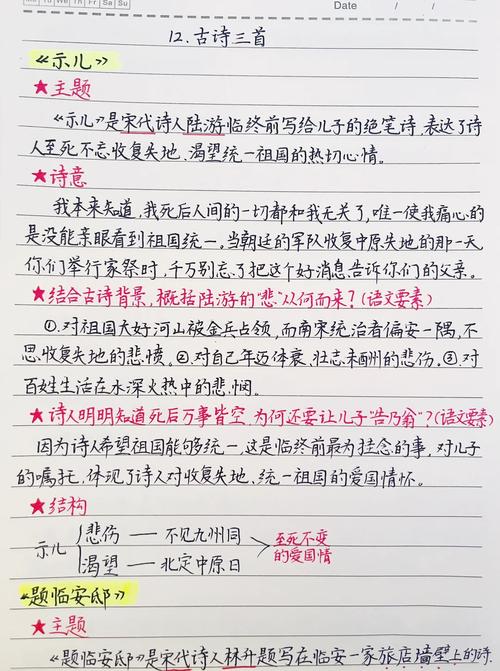 Mo Tu We Th Fr Sa Su
Date / /
12.古诗三首
《示儿》
★主题
《示儿》是宋代诗人陆游临终前写给儿子的绝笔诗,表达了诗
人至死不忘收复失地、渴望统一祖国的热切心情。
★诗意
我本来知道,我死后人间的一切都和我无关了,唯一使我痛心的
是没能亲眼看到祖国统一。当朝廷的军队收复中原失地的那一天,
你们举行家祭时,千万别忘了把这个好消息告诉你们的父亲。
★结合古诗背景,概括陆游的“悲”从何而来?(语文要素)
①.对祖国大好河山被金兵占领,而南宋统治者偏安一隅,不
思收复失地的悲愤。②.对自己年迈体衰、壮志未酬的悲伤。③.对
百姓生活在水深火热中的悲悯。
★诗人明明知道死后万事皆空,为何还要让儿子“告乃翁”?(语文要素)
因为诗人希望祖国能够统一,这是临终前最为挂念的事,对儿子
的嘱托,体现了诗人对收复失地、统一祖国的爱国情怀。
★结构
示儿
悲伤 — 不见九州同
渴望 — 北定中原日
至死不变
的爱国情
《题临安邸》
★主题
《题临安邸》是宋代诗人林升题写在临安一家旅店墙壁上的诗